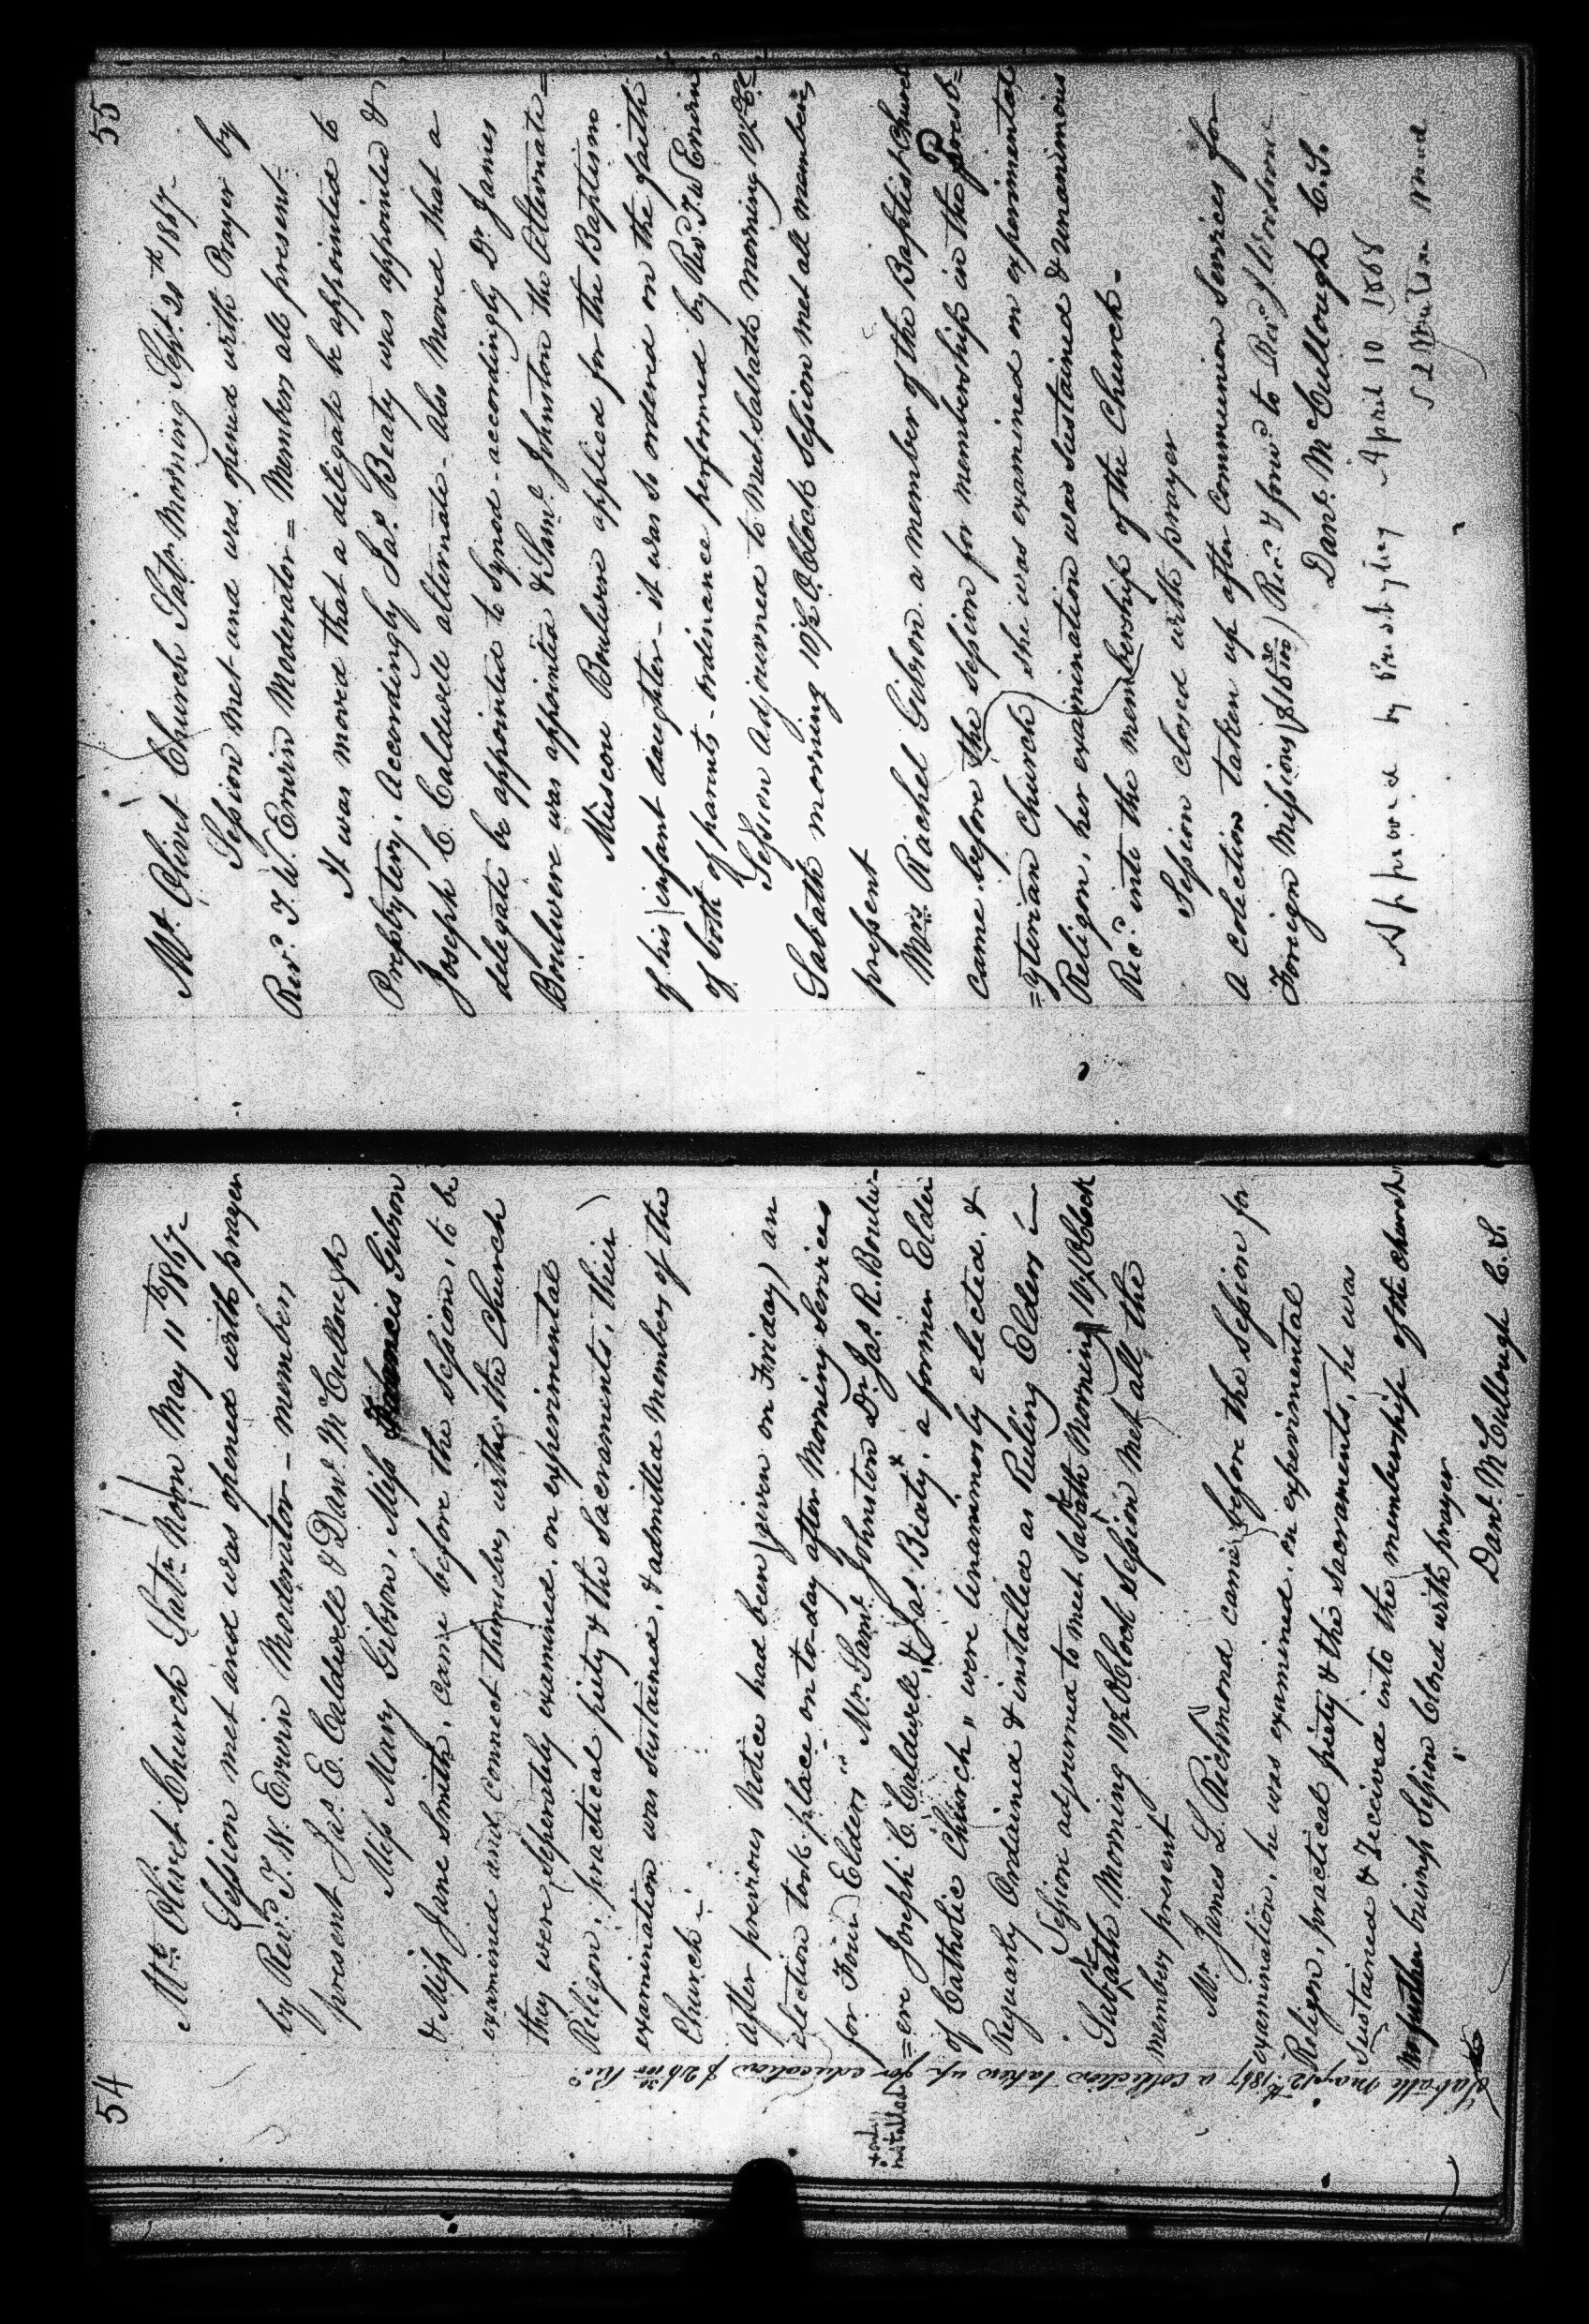 54
Mt. Olivet Church Satr. Noon May 11th 1867
Session met and was opened with prayer
by Revd. T. W. Erwin Moderator - members
present Jas. E. Caldwell & Danl. McCullough
Miss Mary Gibson, Miss Gibson
& Miss Jane Smith, came before the session, to be
examined and connect themselves with the Church
they were seperately examined, on experimental
Religon, practical piety & the Sacraments, their
examination was sustained, & admitted members of the
Church
after previous Notice had been given on Friday) an
election took place on to-day after Morning Services
for Four Elders" Mr. Saml. Johnston Dr. Jas. R. Boulw-
=ere Joseph C. Caldwell & "Jas. Beaty,* a former Elder
of Catholic Church" were Unanimosly elected, &
Reguarly Ordained & installed as Ruling Elders
Session adjurned to meet Sabath Morning 10½ OClock
Sabath Morning 10½ OClock Session Met all the
members present
Mr. James L. Richmond came before the Session for
examination, he was examined, on experimental
Religon, practical piety & the Sacraments, he was
Sustained & Received into the membership of the church
No further buisness Session Closed with prayer
Danl. McCullough C.S.
Sabath May 12th 1867 a collection taken up for education $26 30/100 Recd.
*only
installed
55
Mt. Olivet Church Satr. Morning Sept. 20th 1867
Session met and was opened with Prayer by
Revd. T. W. Erwin Moderator = Members all present
It was moved that a delegate be appointed to
Presbytery, Accordingly Jas. Beaty was appointed &
Joseph C. Caldwell alternate - Also Moved that a
delegate be appointed to Synod - accordingly Dr. James
Boulwere was appointed & Saml. Johnston the Alternate =
Muscoe Boulwere applied for the Baptism
of his infant daughter - it was so ordered on the faith
of both of parents - ordinance performed by Revd. T. W Erwin
Session Adjourned to Meet Sabath morning 10½ O.C.
Sabath morning 10½ O.Clock Session met all members
present
Mrs Rachel Gibson a member of the Baptist Church
came before the session for membership in the Presb-
=yterian Church she was examined on experimental
Religon, her examination was sustained & unanimous
Recd. into the membership of the Church -
Session closed with prayer
A colection taken up after Communion Services for
Foreign Missions $16 30/100 Recd. & forwd. to Revd. J L Wilson
Danl. McCullough C.S.
Approved by Presbytery April 10 1868
Mod